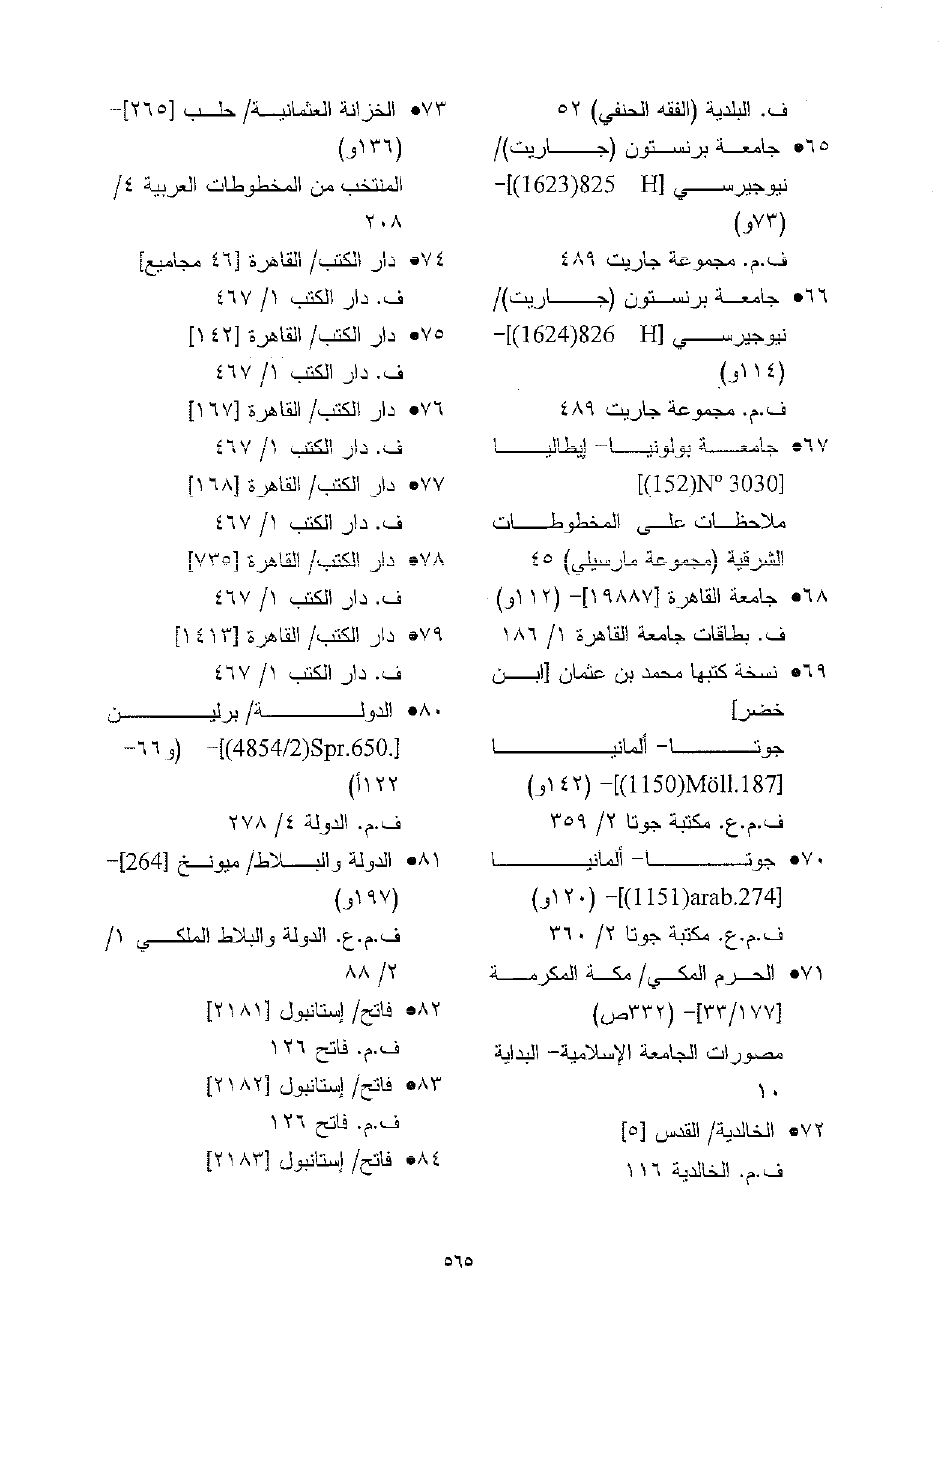 ف. البلدية (الفقه الحنفي) ٥٢
٦٥• جامعة برنستون (جاريت)/
نيوجيرسي [825(1623) H]-
(٧٣و)
ف.م. مجموعة جاريت ٤٨٩
٦٦• جامعة برنستون (جاريت)/
نيوجيرسي [826(1624) H]-
(١١٤و)
ف.م. مجموعة جاريت ٤٨٩
٦٧• جامعة بولونيا- إيطاليا
[3030 N°(152)]
ملاحظات على المخطوطات
الشرقية (مجموعة مارسيلي) ٤٥
٦٨• جامعة القاهرة [١٩٨٨٧]- (١١٢و)
ف. بطاقات جامعة القاهرة ١/ ١٨٦
٦٩• نسخة كتبها محمد بن عثمان [ابن
خضر]
جوتا- ألمانيا
[187.Möll(1150)]- (١٤٢و)
ف.م.ع. مكتبة جوتا ٢/ ٣٥٩
٧٠• جوتا- ألمانيا
[274.arab(1151)]- (١٢٠و)
ف.م.ع. مكتبة جوتا ٢/ ٣٦٠
٧١• الحرم المكي/ مكة المكرمة
[٣٣/١٧٧]- (٣٣٢ص)
مصورات الجامعة الإسلامية- البداية
١٠
٧٢• الخالدية/ القدس [٥]
ف.م. الخالدية ١١٦
٧٣• الخزانة العثمانية/ حلب [٢٦٥]-
(١٣٦و)
المنتخب من المخطوطات العربية ٤/
٢٠٨
٧٤• دار الكتب/ القاهرة [٤٦ مجاميع]
ف. دار الكتب ١/ ٤٦٧
٧٥• دار الكتب/ القاهرة [١٤٢]
ف. دار الكتب ١/ ٤٦٧
٧٦• دار الكتب/ القاهرة [١٦٧]
ف. دار الكتب ١/ ٤٦٧
٧٧• دار الكتب/ القاهرة [١٦٨]
ف. دار الكتب ١/ ٤٦٧
٧٨• دار الكتب/ القاهرة [٧٣٥]
ف. دار الكتب ١/ ٤٦٧
٧٩• دار الكتب/ القاهرة [١٤١٣]
ف. دار الكتب ١/ ٤٦٧
٨٠• الدولة/ برلين
[.650.Spr(4854/2)]- (و ٦٦-
١٢٢أ)
ف.م. الدولة ٤/ ٢٧٨
٨١• الدولة والبلاط/ ميونخ [264]-
(١٩٧و)
ف.م.ع. الدولة والبلاط الملكي ١/
٢/ ٨٨
٨٢• فاتح/ إستانبول [٢١٨١]
ف.م. فاتح ١٢٦
٨٣• فاتح/ إستانبول [٢١٨٢]
ف.م. فاتح ١٢٦
٨٤• فاتح/ إستانبول [٢١٨٣]
٥٦٥